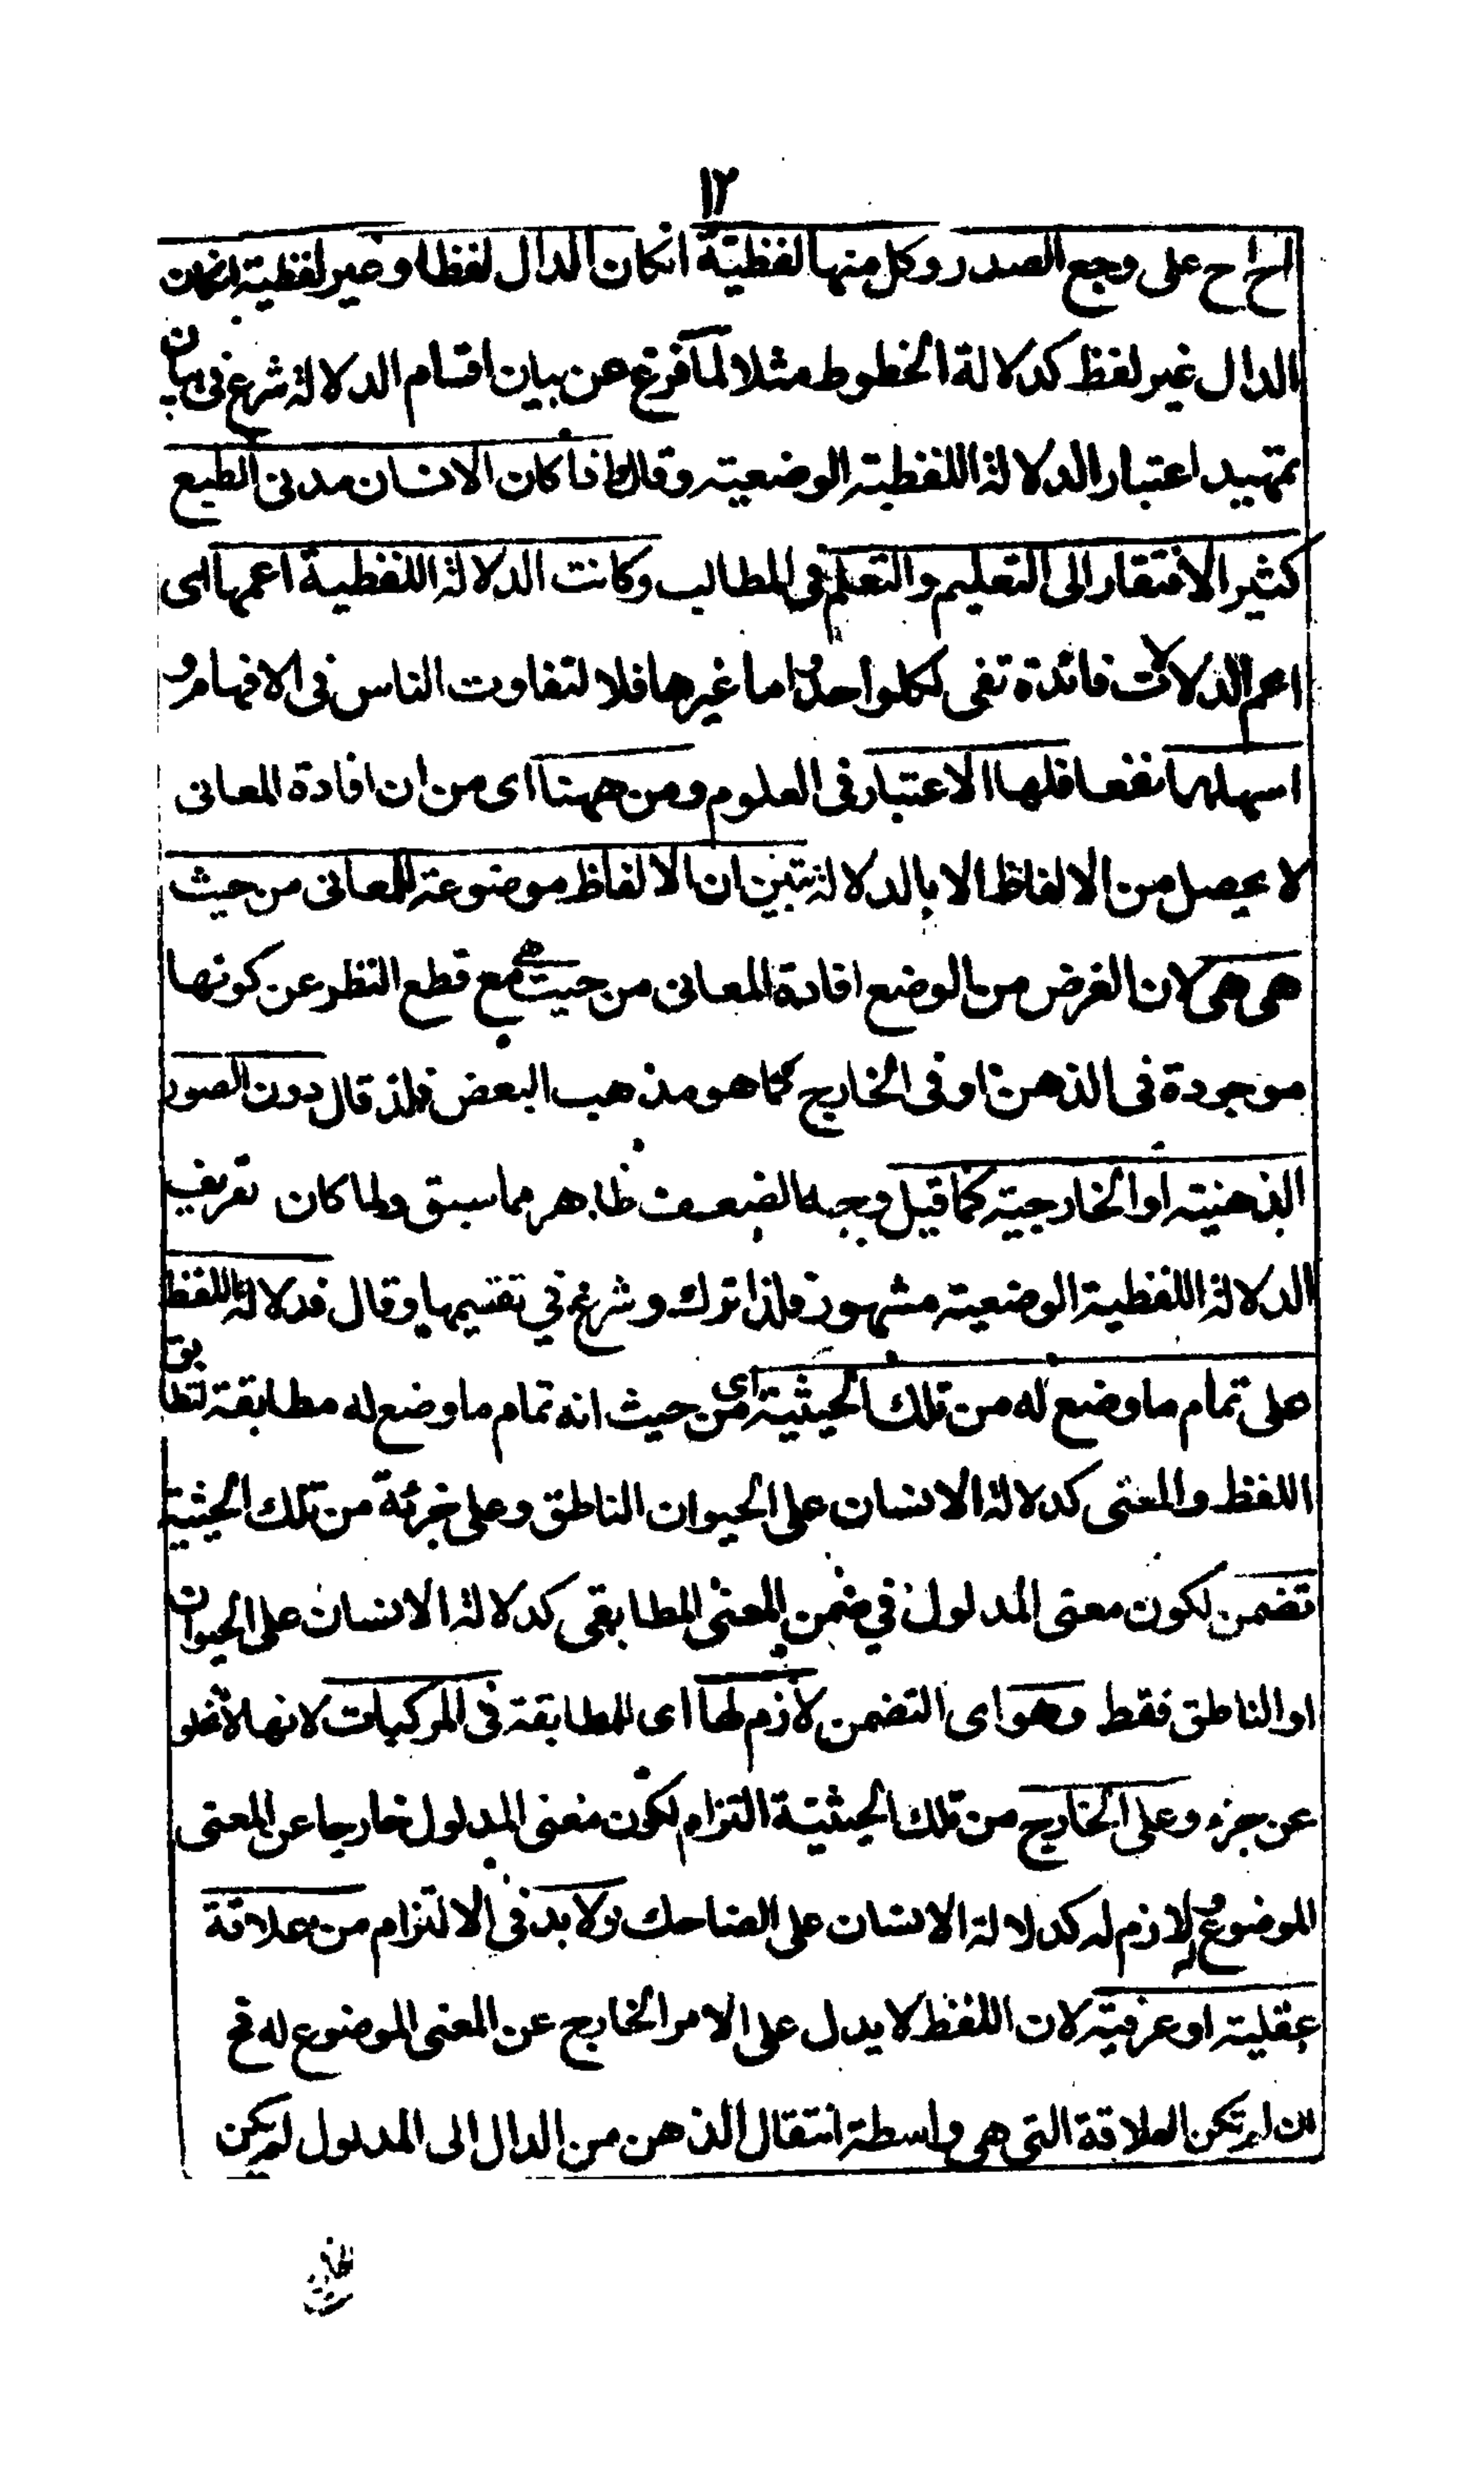 ١٢
اح اح على وجع الصدر وكل منها لفظية انكان الدال لفظا وغير لفظية انكان
الدال غير لفظ كدلالة الخطوط مثلا لما فرغ عن بيان اقسام الدلالة شرع فى بيان
تمهيد اعتبار الدلالة اللفظية الوضعية وقال كان الانسان مدنى الطبع
كثير الافتقار الى التعليم والتعلم فى المطالب وكانت الدلالة اللفظية اعمها اى
اعم الدلالات فائدة تفى لكلواحد اما غيرها فلا لتفاوت الناس فى الافهام و
اسهلها نفعا فلها الاعتبار فى العلوم ومن ههنا اى من ان افادة المعانى
لا يحصل من الالفاظ الا بالدلالة تبين ان الالفاظ موضوعة للمعانى من حيث
هى هى لان الغرض من الوضع افادة المعانى من حيث هى مع قطع النظر عن كونها
موجودة فى الذهن او فى الخارج كما هو مذهب البعض فلذ قال دون الصور
الذهنية او الخارجية كما قيل وجه الضعف ظاهر مما سبق ولما كان تعريف
الدلالة اللفظية الوضعية مشهور فلذا ترك وشرع في تقسيمها وقال فدلالة اللفظ
على تمام ما وضع له من تلك الحيثية اى من حيث انه تمام ما وضع له مطابقة لتطابق
اللفظ والمعنى كدلالة الانسان على الحيوان الناطق وعلى جزئه من تلك الحيثية
تضمن لكون معنى المدلول في ضمن المعنى المطابقى كدلالة الانسان على الحيوان
او الناطق فقط وهو اى التضمن لازم لها اى للمطابقة فى المركبات لانها لا تخلو
عن جزء وعلى الخارج من تلك الحيثية التزام لكون معنى المدلول خارجا عن المعنى
الموضوع له لازم له كدلالة الانسان على الضاحك ولا بد فى الالتزام من علاقة
عقلية او عرفية لان اللفظ لا يدل على الامر الخارج عن المعنى الموضوع له فح
ان لم تكن العلاقة التى هى واسطة انتقال الذهن من الدال الى المدلول لم تكن